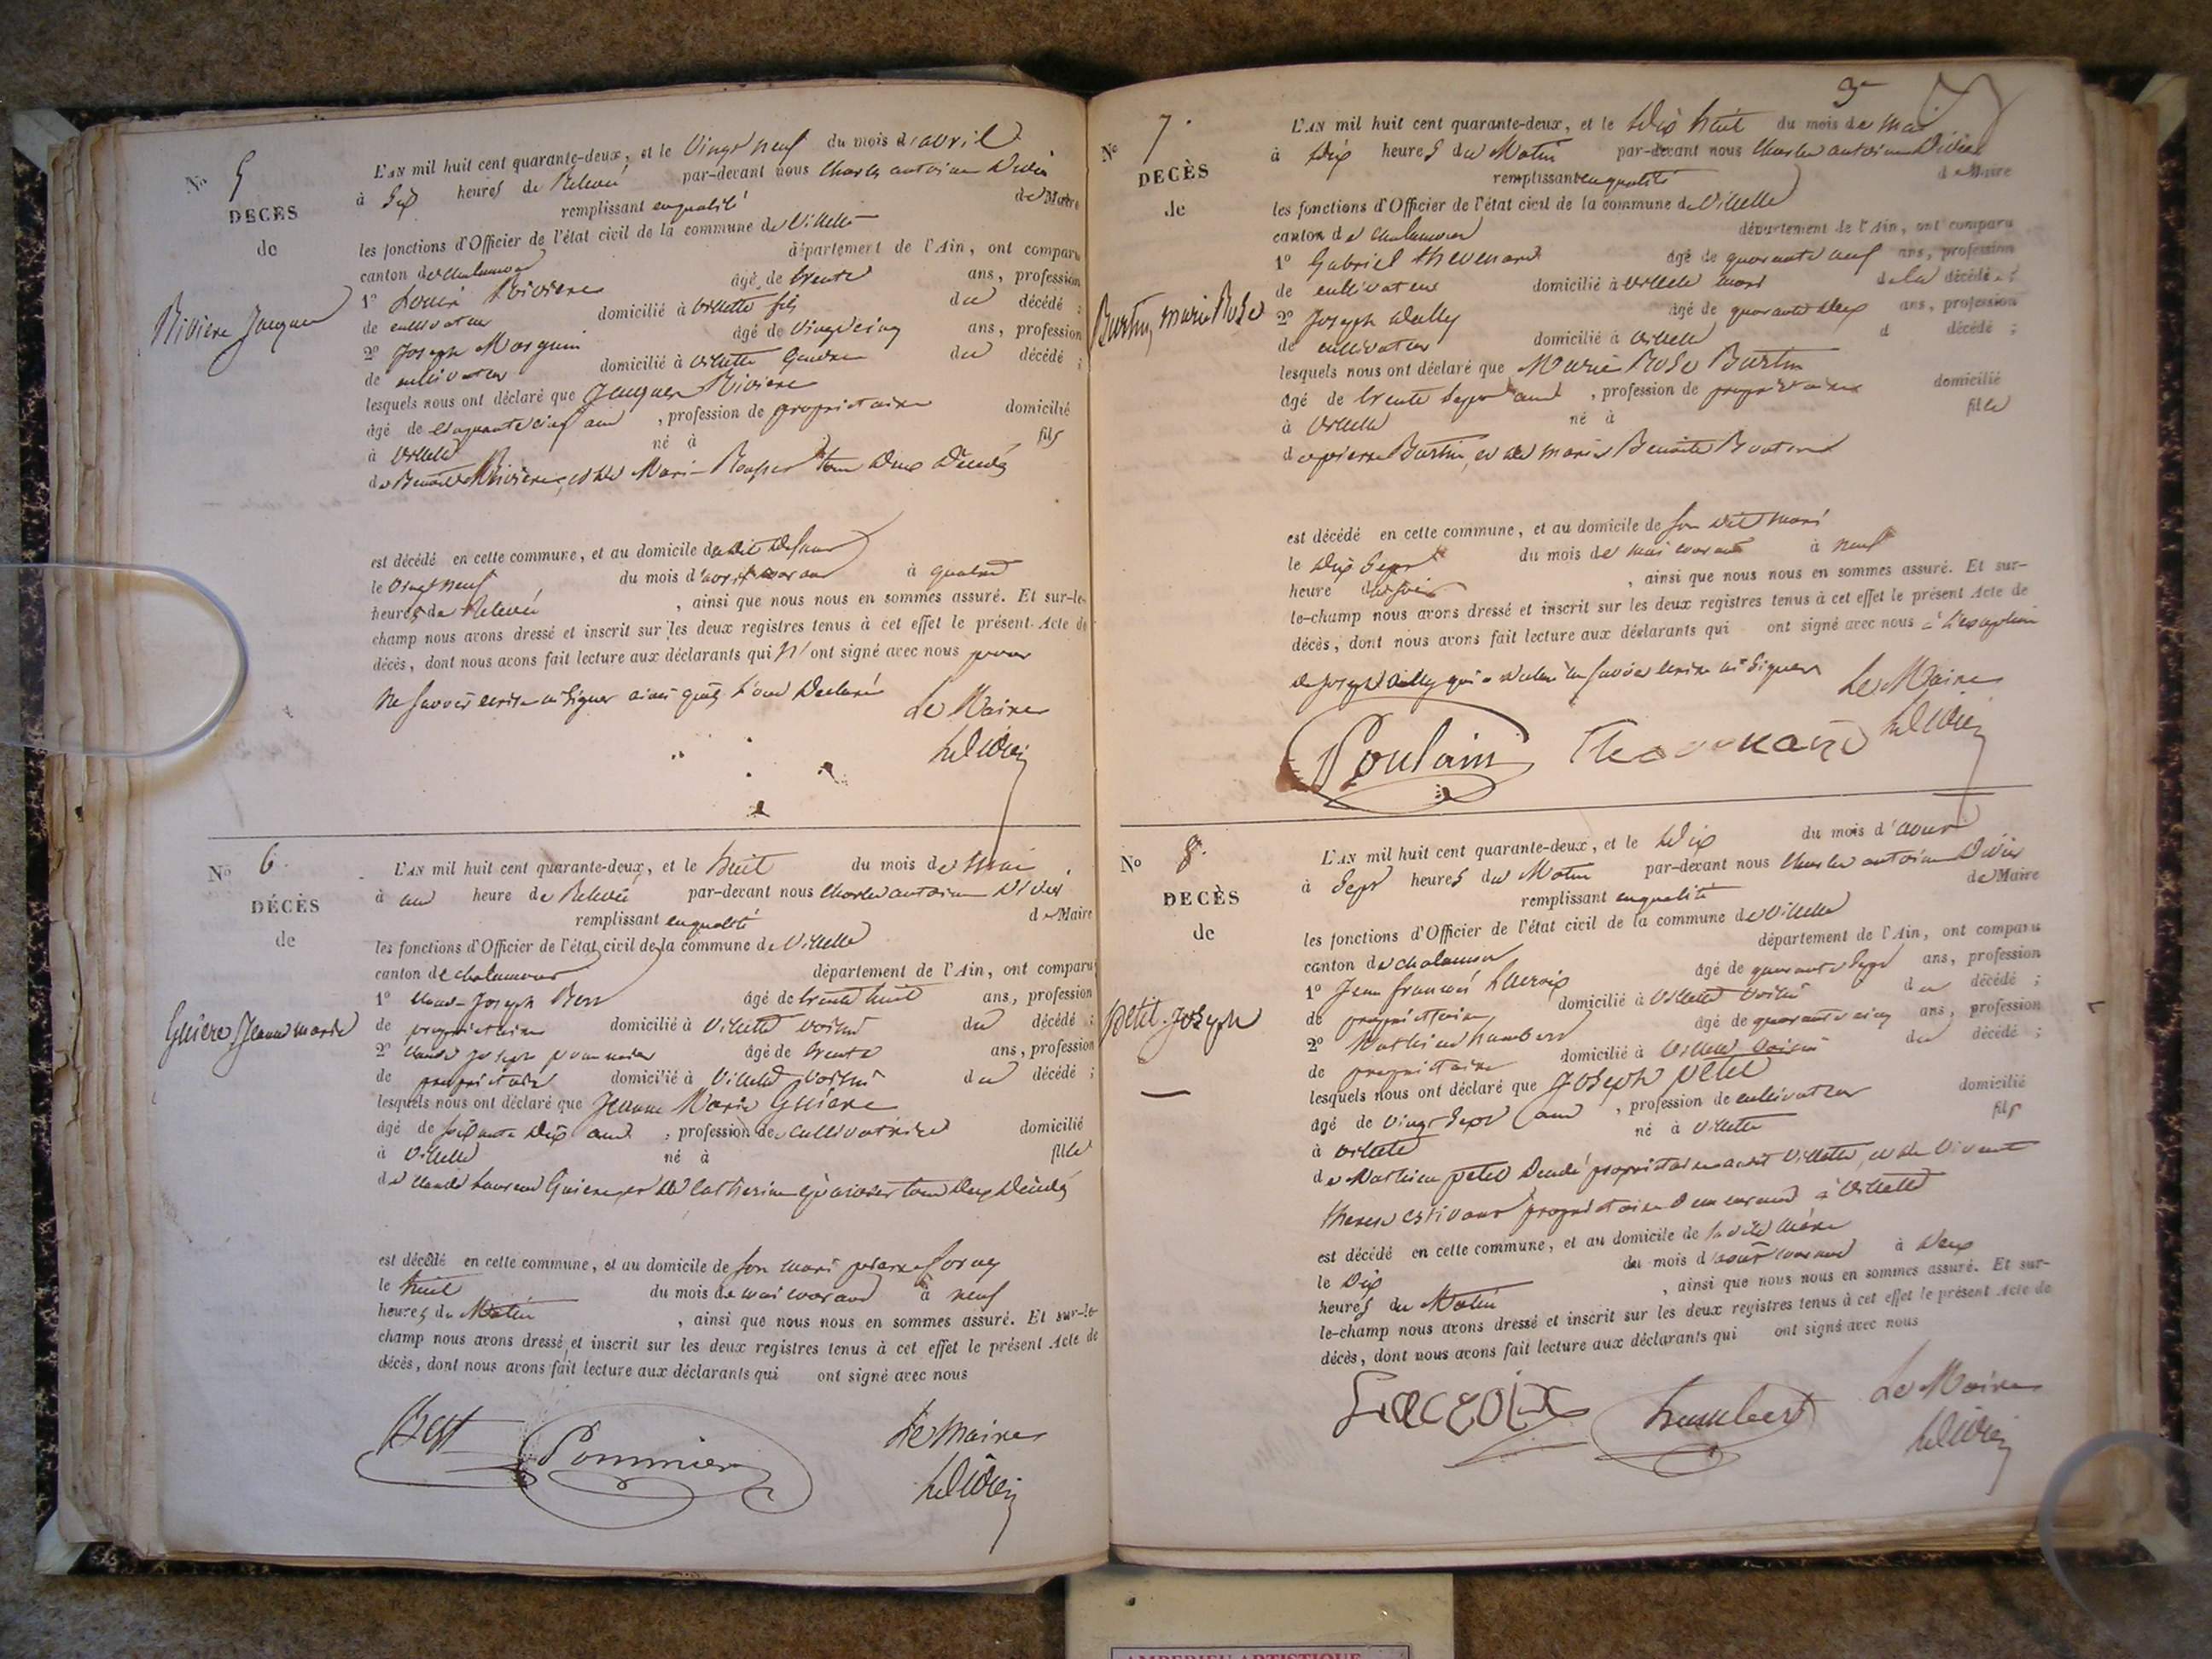 No 5
DÉCÈS
de
Riviere Jacques
L'AN mil huit cent quarante-deux, et le vingt neuf du mois d'avril
à Six heures de Relevée par-devant nous Charles antoine Didier
remplissant en qualité de Maire
les fonctions d'Officier de l'état civil de la commune de Villette
canton de chalamont département de l'Ain, ont comparu
1° Louis Riviere âgé de trente ans, profession
de cultivateur domicilié à Villette fils du décédé ;
2° Joseph Morguin âgé de vingt cinq ans, profession
de cultivateur domicilié à Villette Gendre du décédé ;
lesquels nous ont déclaré que Jacques Riviere
âgé de cinquante cinq ans , profession de propriétaire domicilié
à Villette né à fils
de Benoit Riviere, et de Marie tous deux Décédés
est décédé en cette commune, et au domicile du dit Défunt
le vingt neuf du mois d'avril courant à quatre
heures de Relevée , ainsi que nous nous en sommes assuré. Et sur-le-
champ nous avons dressé et inscrit sur les deux registres tenus à cet effet le présent Acte de
décès, dont nous avons fait lecture aux déclarants qui n'ont signé avec nous pour
ne savoir écrire ni signer ainsi qu'ils l'ont Déclaré
Le Maire
Didier
No 6.
DÉCÈS
de
Guiere Jeanne marie
L'AN mil huit cent quarante-deux, et le huit du mois de Mai
à une heure de Relevée par-devant nous Charles antoine Didier
remplissant en qualité de Maire
les fonctions d'Officier de l'état civil de la commune de Villette
canton de chalamont département de l'Ain, ont comparu
1° Claude Joseph Berr âgé de trente huit ans, profession
de propriétaire domicilié à Villette voisin du décédé ;
2° Claude Joseph pommier âgé de trente ans, profession
de propriétaire domicilié à Villette voisin du décédé ;
lesquels nous ont déclaré que Jeanne Marie Guiere
âgé de soixante Dix ans , profession de cultivatrice domicilié
à Villette né à fille
de Claude Laurent Guiere, et de Catherine tous deux Décédés
est décédé en cette commune, et au domicile de son mari pierre forney
le huit du mois de mai courant à neuf
heures du Matin , ainsi que nous nous en sommes assuré. Et sur-le-
champ nous avons dressé et inscrit sur les deux registres tenus à cet effet le présent Acte de
décès, dont nous avons fait lecture aux déclarants qui ont signé avec nous
Pommier
Le Maire
Didier
No 7.
DECÈS
de
Burtin marie Rose
L'AN mil huit cent quarante-deux, et le Dix huit du mois de Mai
à Dix heures du Matin par-devant nous Charles antoine Didier
remplissant en qualité de Maire
les fonctions d'Officier de l'état civil de la commune de Villette
canton de chalamont département de l'Ain, ont comparu
1° Gabriel thevenard âgé de quarante neuf ans, profession
de cultivateur domicilié à Villette mari de la décédée ;
2° Joseph Wally âgé de quarante deux ans, profession
de cultivateur domicilié à Villette d décédé ;
lesquels nous ont déclaré que Marie Rose Burtin
âgé de trente Sept ans , profession de propriétaire domicilié
à Villette né à fille
de pierre Burtin, et de marie Benoite
est décédé en cette commune, et au domicile de son dit mari
le Dix Sept du mois de mai courant à neuf
heure du soir , ainsi que nous nous en sommes assuré. Et sur-
le-champ nous avons dressé et inscrit sur les deux registres tenus à cet effet le présent Acte de
décès, dont nous avons fait lecture aux déclarants qui ont signé avec nous à l'exception
de joseph Wally qui a déclaré ne savoir écrire ni signer
Le Maire
Poulain Thevenard Didier
No 8.
DECÈS
de
petit Joseph
L'AN mil huit cent quarante-deux, et le Dix du mois d'aout
à Sept heures du Matin par-devant nous Charles antoine Didier
remplissant en qualité de Maire
les fonctions d'Officier de l'état civil de la commune de Villette
canton de chalamont département de l'Ain, ont comparu
1° Jean françois Lacroix âgé de quarante Sept ans, profession
de propriétaire domicilié à Villette voisin du décédé ;
2° Mathieu humbert âgé de quarante cinq ans, profession
de propriétaire domicilié à Villette voisin du décédé ;
lesquels nous ont déclaré que Joseph petit
âgé de vingt Sept ans , profession de cultivateur domicilié
à Villette né à Villette fils
de Mathieu petit Décédé propriétaire audit Villette, et de vivante
therese estivant propriétaire demeurant à Villette
est décédé en cette commune, et au domicile de sa dite mère
le Dix du mois d'août courant à deux
heures du Matin , ainsi que nous nous en sommes assuré. Et sur-
le-champ nous avons dressé et inscrit sur les deux registres tenus à cet effet le présent Acte de
décès, dont nous avons fait lecture aux déclarants qui ont signé avec nous
Le Maire
Lacroix humbert Didier
AMBERIEU ARTISTIQUE